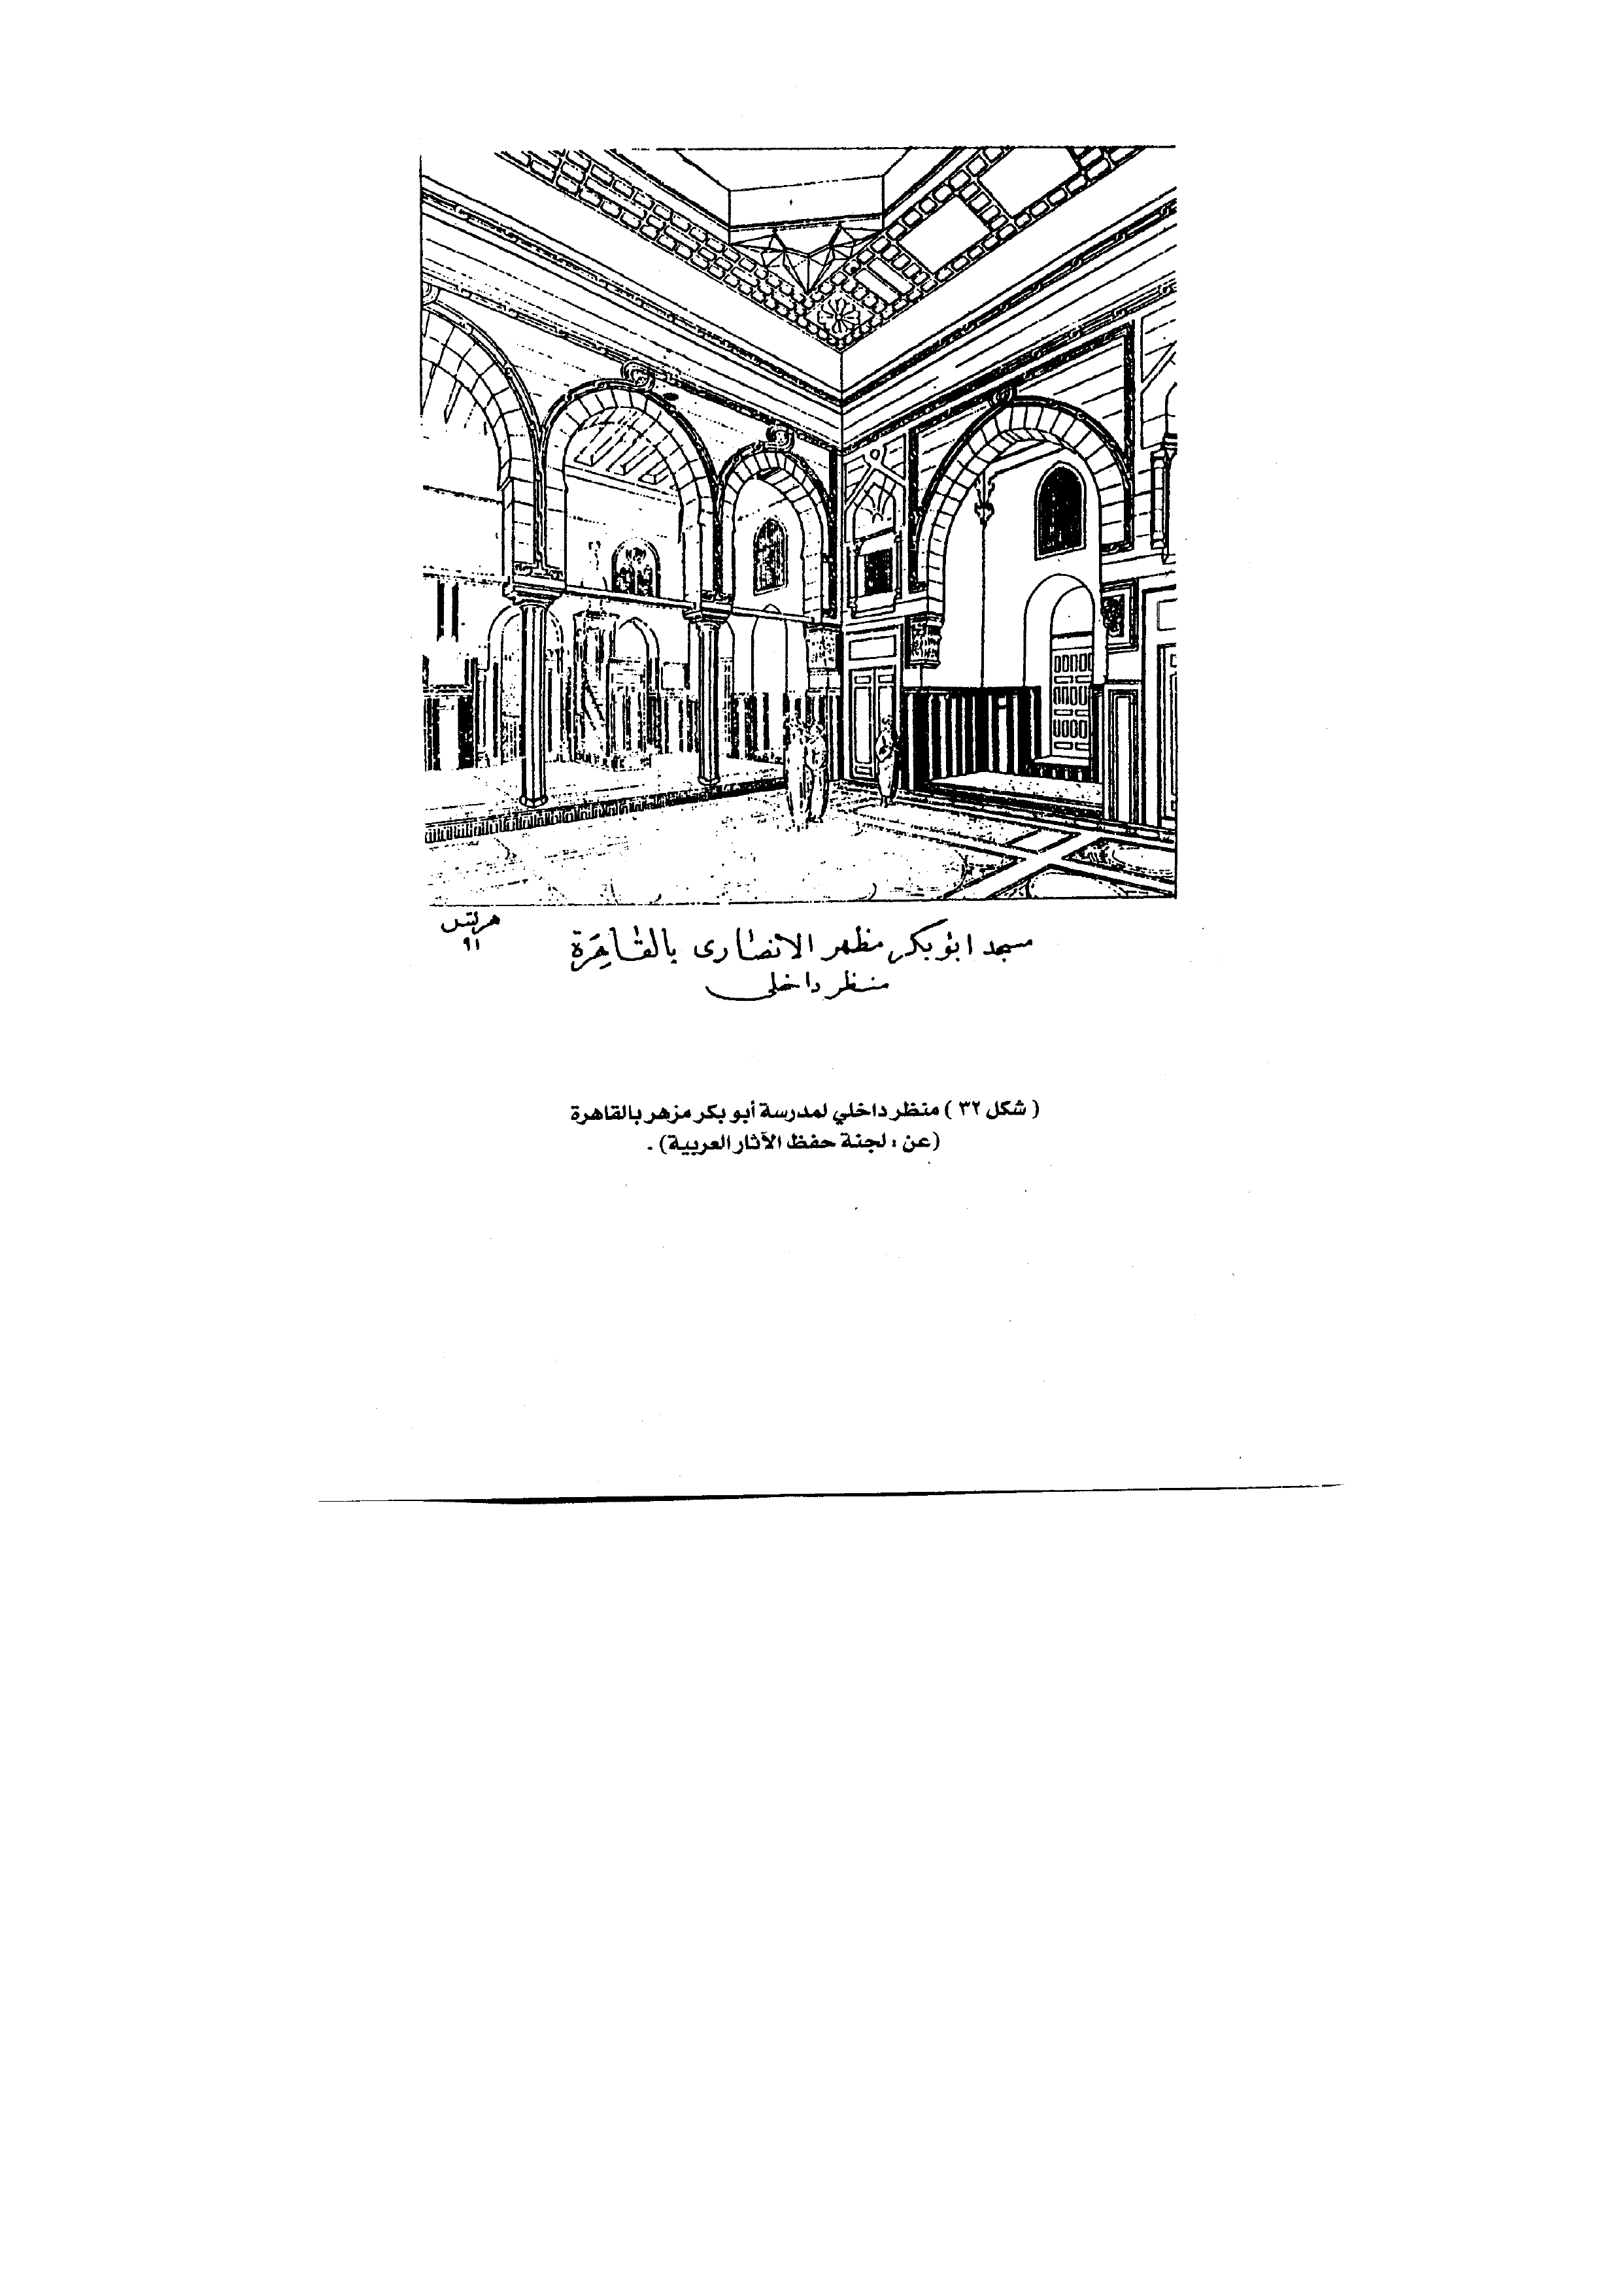 هرتس
٩١
مسجد ابو بكر مظهر الانصارى بالقاهرة
منظر داخلى
( شكل ٣٢ ) منظر داخلي لمدرسة أبو بكر مزهر بالقاهرة
(عن : لجنة حفظ الآثار العربية) .